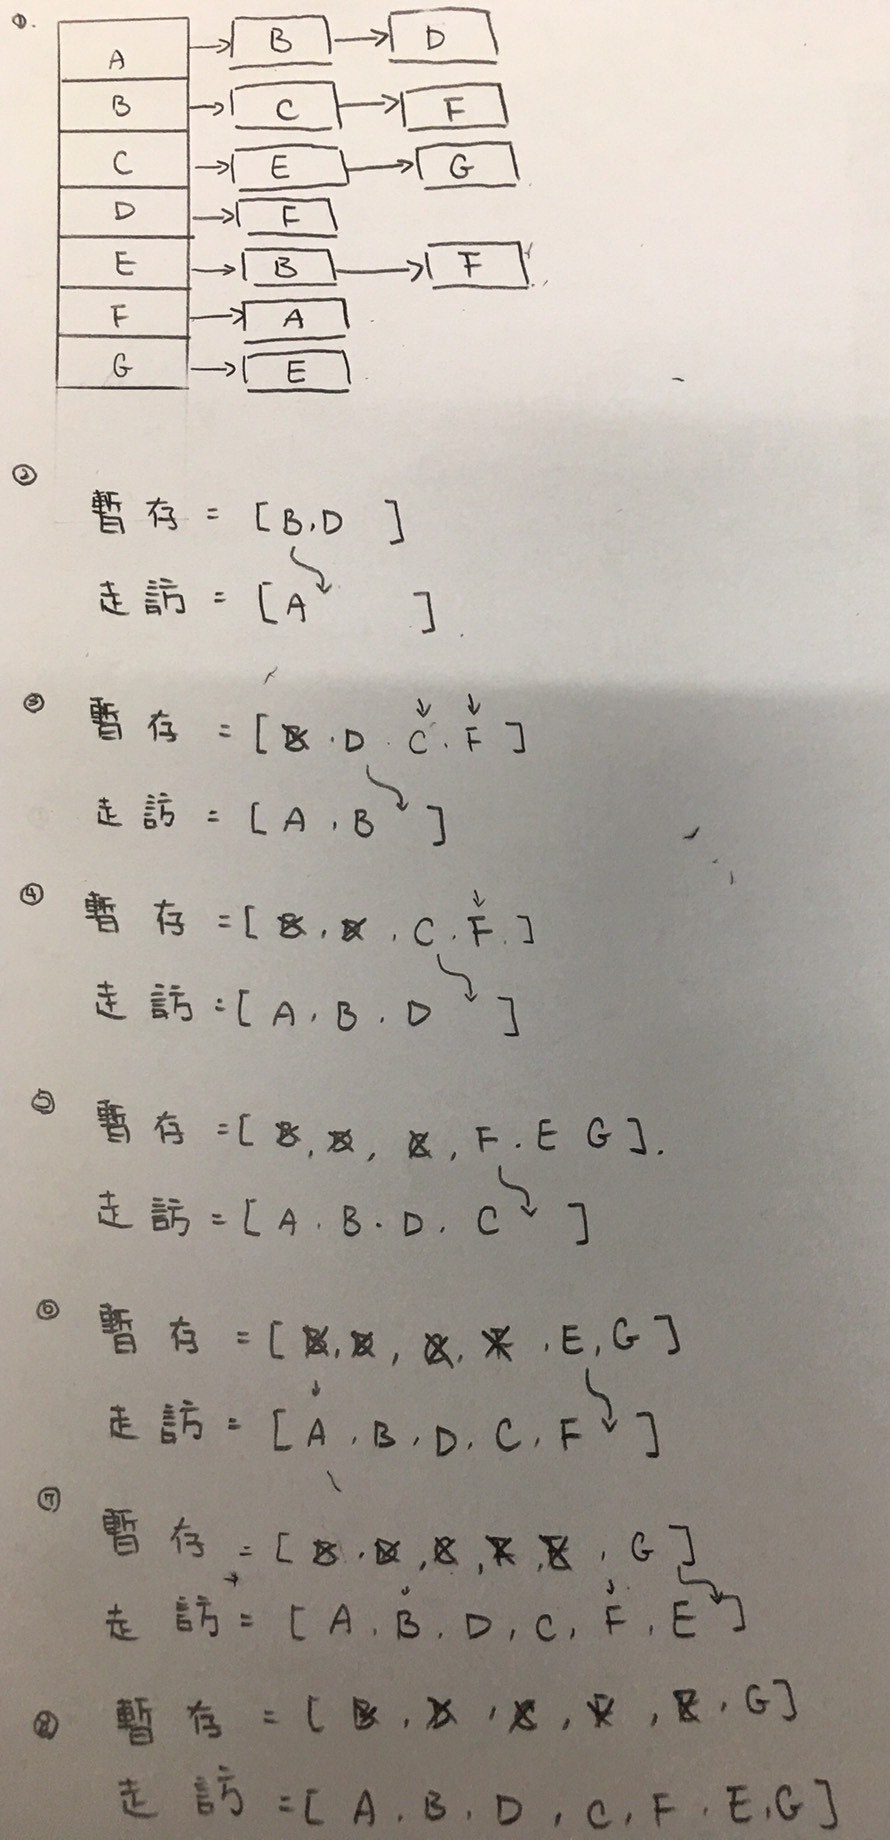 ①.
A → B → D
B → C → F
C → E → G
D → F
E → B → F
F → A
G → E
②
暫存 = [B.D ]
走訪 = [A ]
③
暫存 = [B . D . C . F]
走訪 = [A . B ]
④
暫存 = [B . D . C . F.]
走訪 = [A . B . D ]
⑤
暫存 = [B, D, C, F . E G].
走訪 = [A . B . D . C ]
⑥
暫存 = [B, D, C, F . E, G]
走訪 = [A . B . D . C . F ]
⑦
暫存 = [B . D , C , F , E . G]
走訪 = [A . B . D , C , F . E ]
⑧
暫存 = [B . D , C , F , E . G]
走訪 = [A . B . D , C , F . E . G]